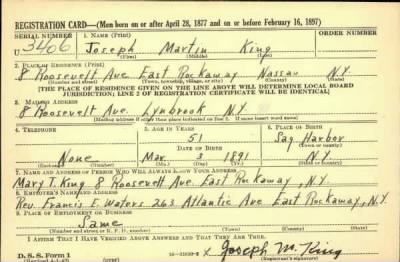 REGISTRATION CARD—(Men born on or after April 28, 1877 and on or before February 16, 1897)
SERIAL NUMBER 1. NAME (Print) ORDER NUMBER
U 3406 Joseph Martin King
(First) (Middle) (Last)
2. PLACE OF RESIDENCE (Print)
8 Roosevelt Ave East Rockaway Nassau N.Y.
(Number and street) (Town, township, village, or city) (County) (State)
[THE PLACE OF RESIDENCE GIVEN ON THE LINE ABOVE WILL DETERMINE LOCAL BOARD
JURISDICTION; LINE 2 OF REGISTRATION CERTIFICATE WILL BE IDENTICAL]
3. MAILING ADDRESS
8 Roosevelt Ave Lynbrook N.Y.
[Mailing address if other than place indicated on line 2. If same insert word same]
4. TELEPHONE 5. AGE IN YEARS 6. PLACE OF BIRTH
51 Sag Harbor
DATE OF BIRTH (Town or county)
None Mar. 3 1891 N.Y.
(Exchange) (Number) (Mo.) (Day) (Yr.) (State or country)
7. NAME AND ADDRESS OF PERSON WHO WILL ALWAYS KNOW YOUR ADDRESS
Mary T. King 8 Roosevelt Ave East Rockaway, N.Y.
8. EMPLOYER'S NAME AND ADDRESS
Rev. Francis E. Waters 263 Atlantic Ave East Rockaway, N.Y.
9. PLACE OF EMPLOYMENT OR BUSINESS
Same
(Number and street or R. F. D. number) (Town) (County) (State)
I AFFIRM THAT I HAVE VERIFIED ABOVE ANSWERS AND THAT THEY ARE TRUE.
D. S. S. Form 1 x Joseph M. King
(Registrant's signature)